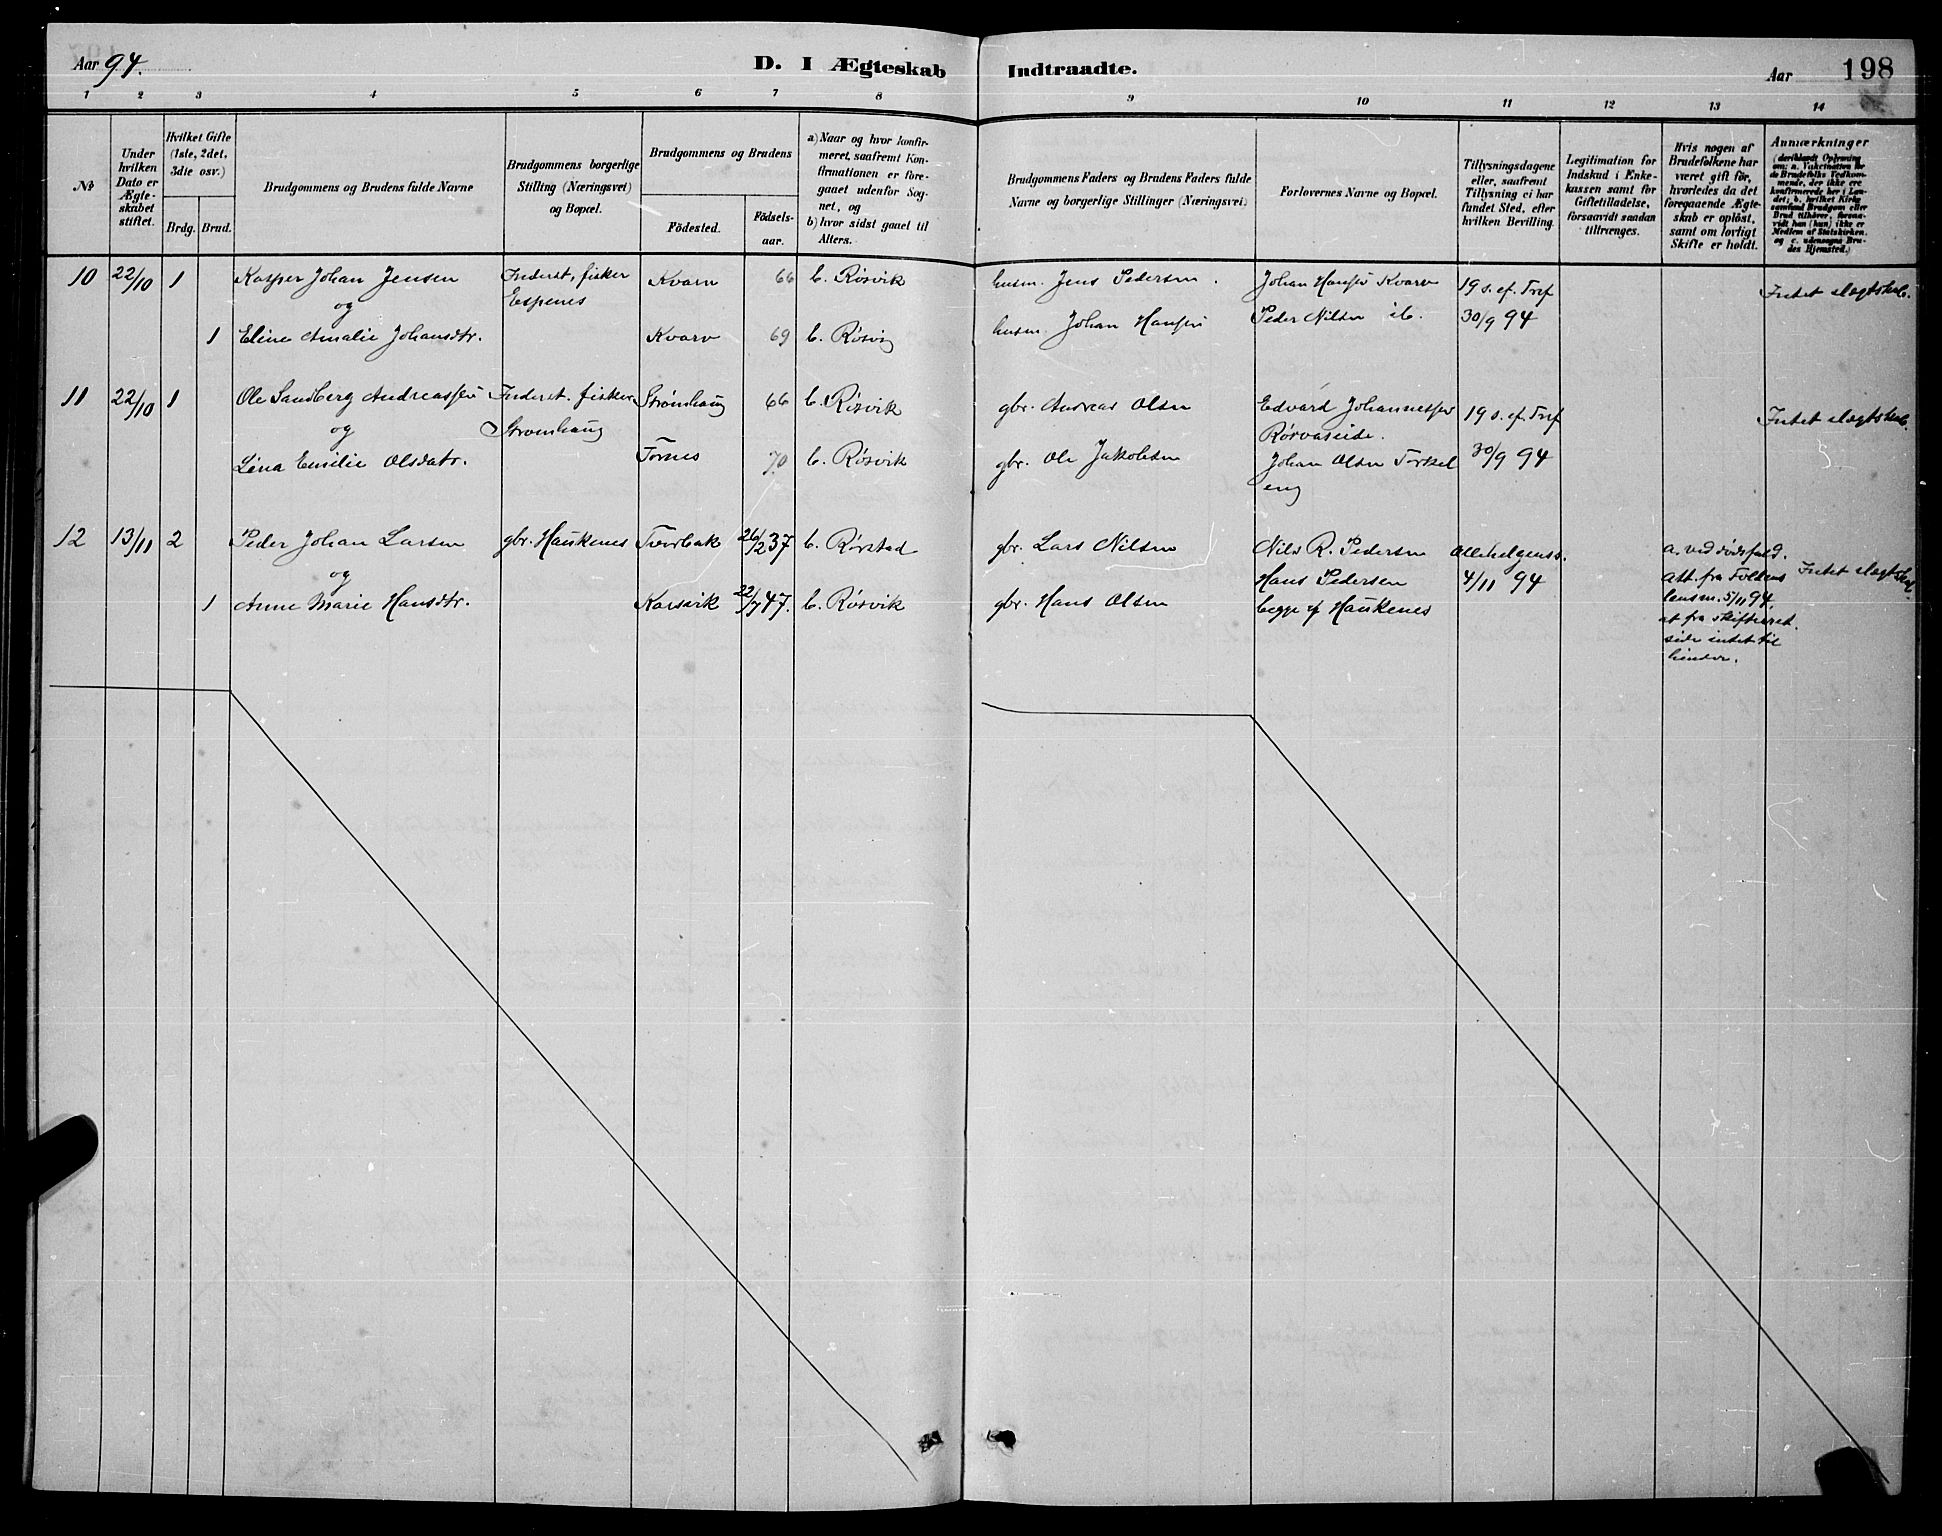 Aar 94.
D. I Ægteskab Indtraadte.
Aar
198
1 2 3 4 5 6 7 8 9 10 11 12 13 14
No
Under hvilken Dato er Ægte-skabet stiftet.
Hvilket Gifte (1ste, 2det, 3die osv.)
Brdg. Brud.
Brudgommens og Brudens fulde Navne
Brudgommens borgerlige Stilling (Næringsvei) og Bopæl.
Brudgommens og Brudens
Födested.
Födsels-aar.
a) Naar og hvor konfir-meret, saafremt Kon-firmationen er fore-gaaet udenfor Sog-net, og
b) hvor sidst gaaet til Alters.
Brudgommens Faders og Brudens Faders fulde Navne og borgerlige Stillinger (Næringsvei)
Forlovernes Navne og Bopæl.
Tillysningsdagene eller, saafremt Tillysning ei har fundet Sted, efter hvilken Bevilling.
Legitimation for Indskud i Enke-kassen samt for Giftetilladelse, forsaavidt saadan tiltrænges.
Hvis nogen af Brudefolkene har været gift för, hvorledes da det foregaaende Ægte-skab er oplöst, samt om lovligt Skifte er holdt.
Anmærkninger
10 22/10 1 Kasper Johan Jensen Inderst, fisker Kvarv 66 b. Røsvik husm. Jens Pedersen. Johan Hansen Kvarv 19 s. ef. Tref Intet slægtskab.
og Espenes
1 Eline Amalie Johansdtr. Kvarv 69 b. Røsvig husm. Johan Hansen Peder Nilsen ib. 30/9 94
11 22/10 1 Ole Sandberg Andreassen Inderst. fisker Strømhaug 66 b. Røsvik gbr. Andreas Olsen Edvard Johannessen 19 s. ef. Tref Intet slægtskab.
og Strømhaug Rørvaseide.
Lina Emilie Olsdatr. Tørnes 70 b. Røsvik gbr. Ole Jakobsen Johan Olsen Torkel 30/9 94
eng
12 13/11 2 Peder Johan Larsen gbr. Haukenes Tverbak 26/12 37 b. Rørstad gbr. Lars Nilsen Nils R. Pedersen Allehelgenss. a. ved dødsfald.
og Hans Pedersen 4/11 94 Att. fra Foldens Intet slægtskab.
1 Anne Marie Hansdtr. Korsvik 22/7 47. b. Røsvik gbr. Hans Olsen begge af Haukenes lensm. 5/11 94,
at fra skifteret.
side intet til
hinder.